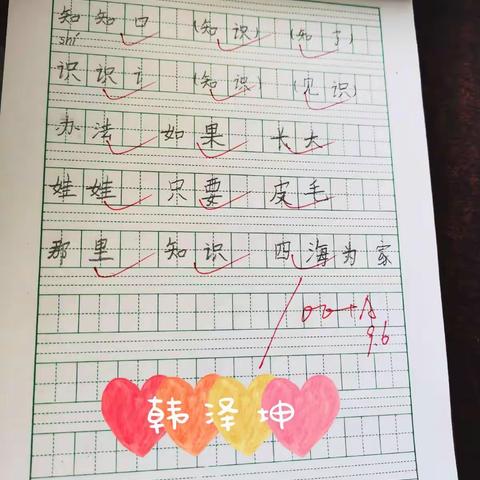 知知口 (知识) (知了)
shí
识识讠 (知识) (见识)
办法 如果 长大
娃娃 只要 皮毛
那里 知识 四海为家
A
9.6
韩泽坤